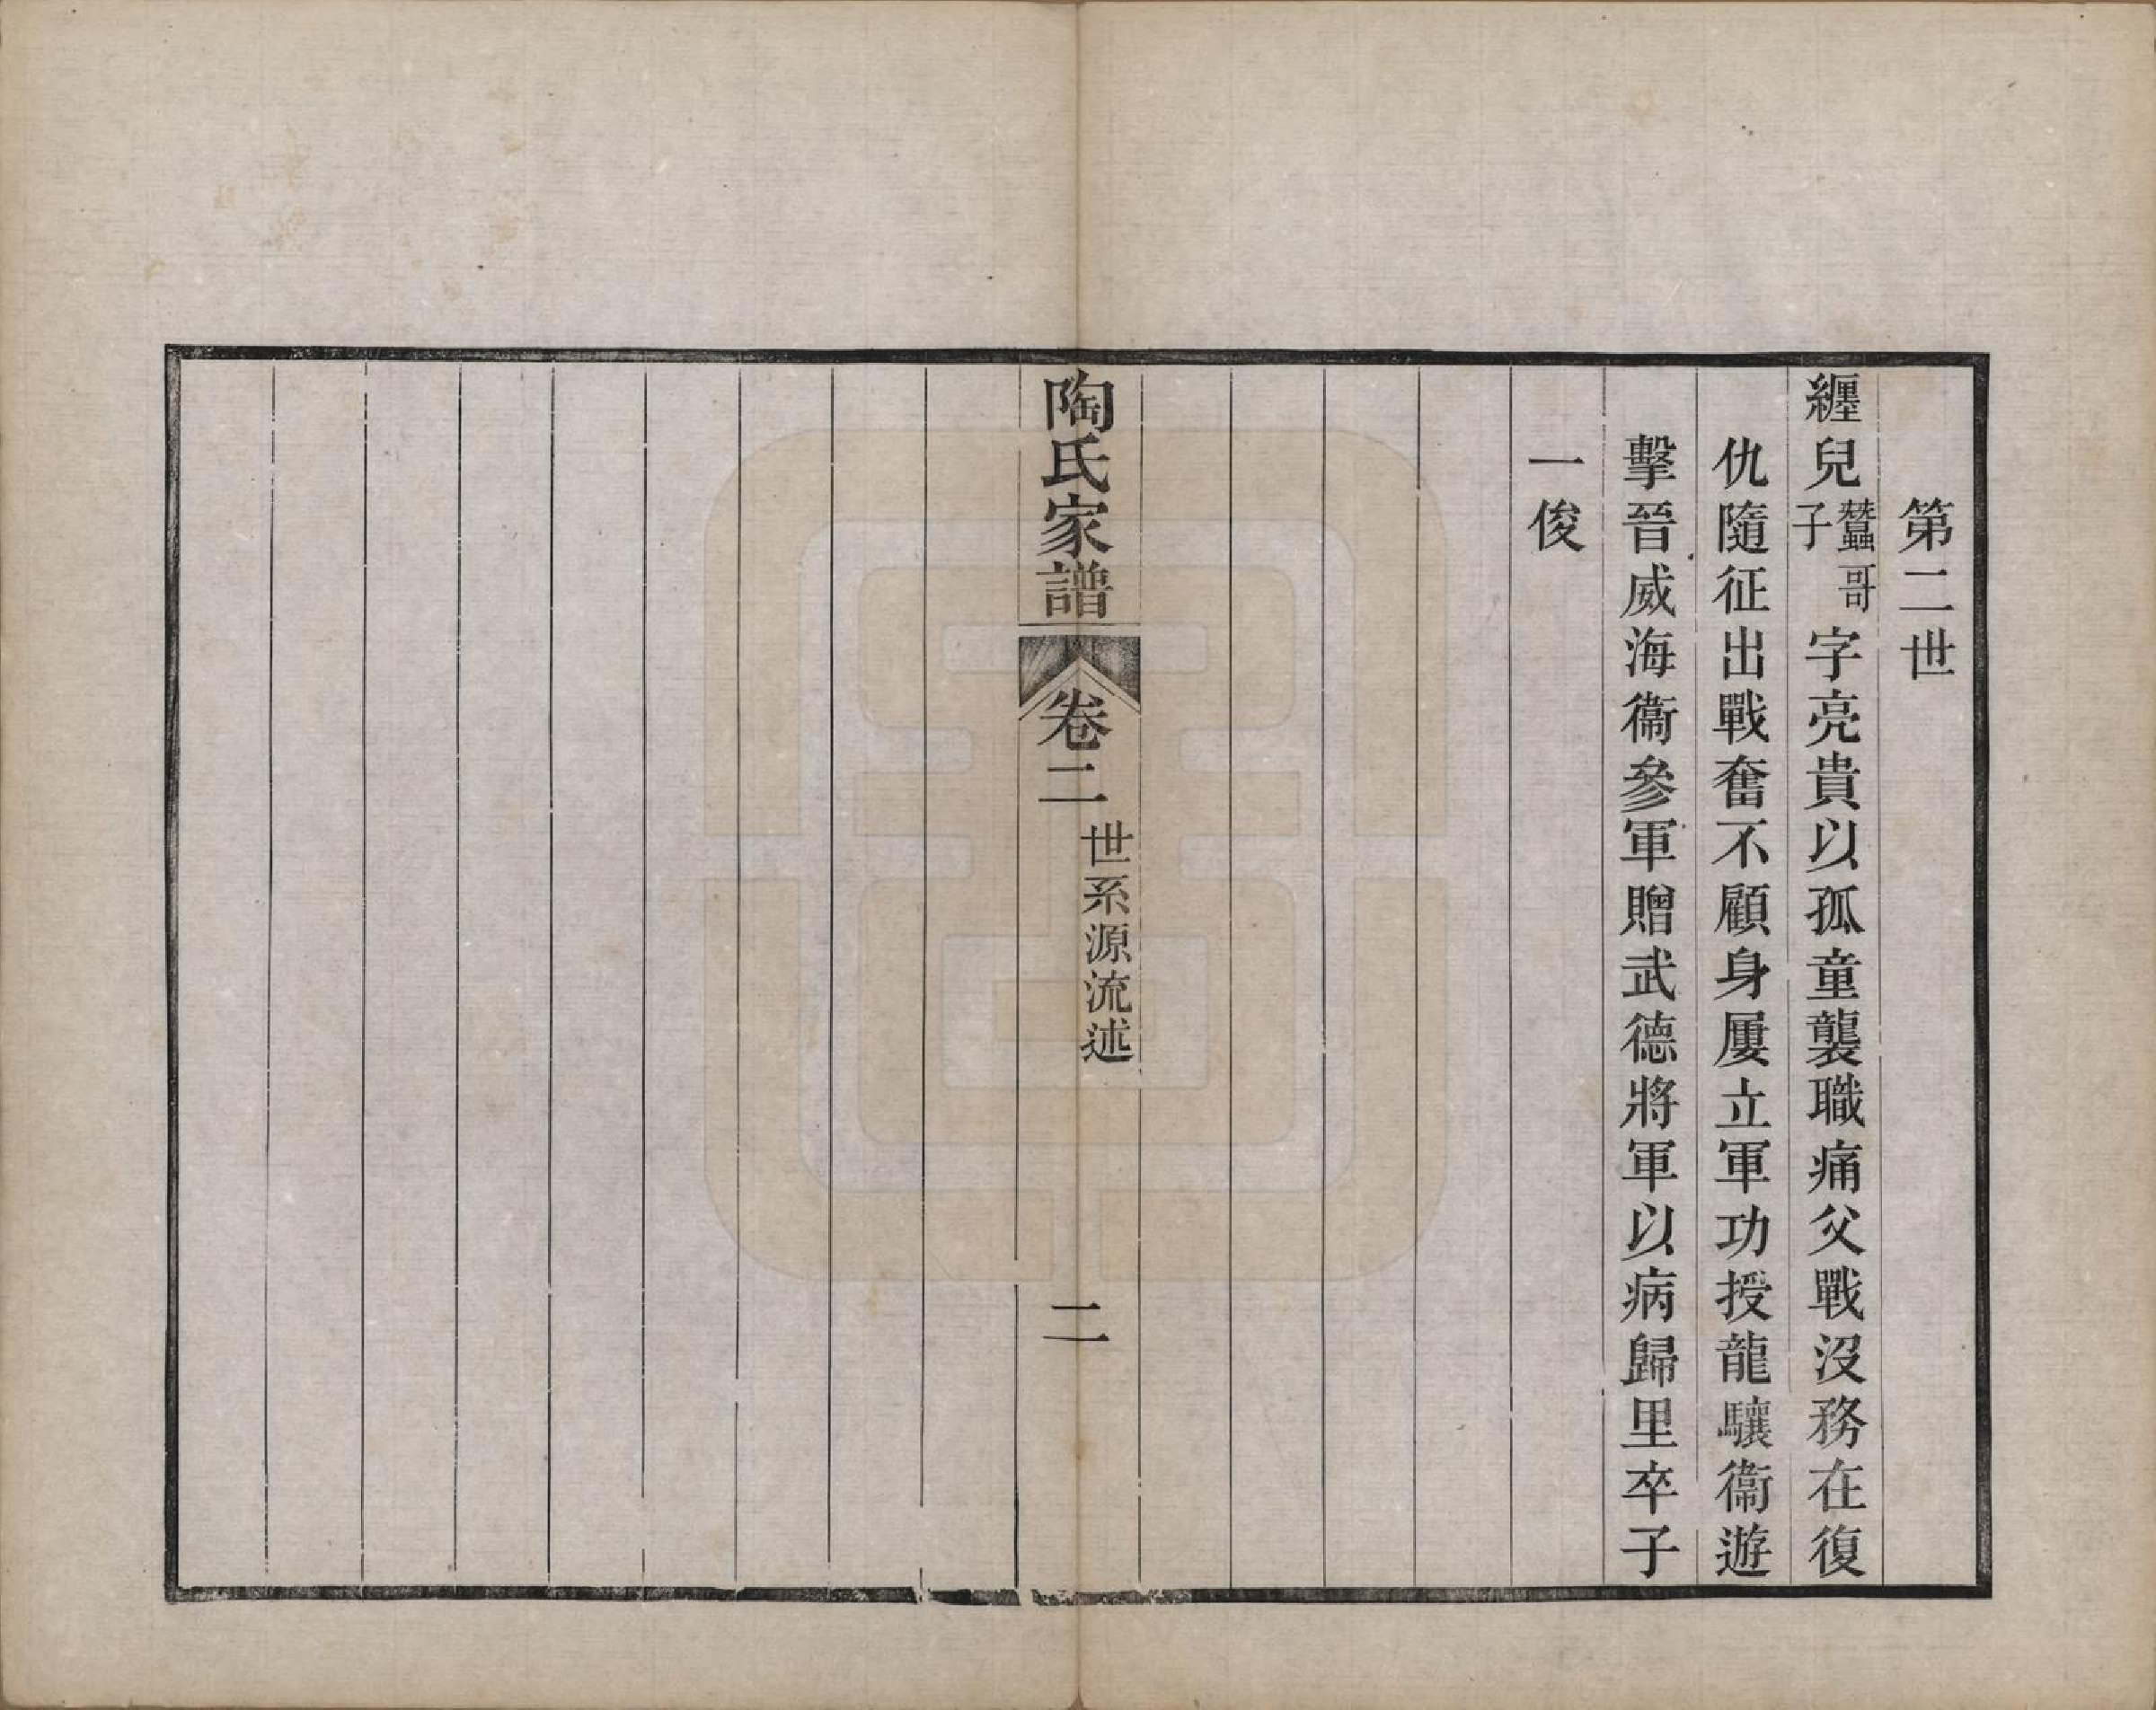 第二世
纏兒蠶哥子字亮貴以孤童襲職痛父戰沒務在復
仇隨征出戰奮不顧身屢立軍功授龍驤衞遊
擊晉威海衞參軍贈武德將軍以病歸里卒子
一俊
陶氏家譜 卷二 世系源流述 二